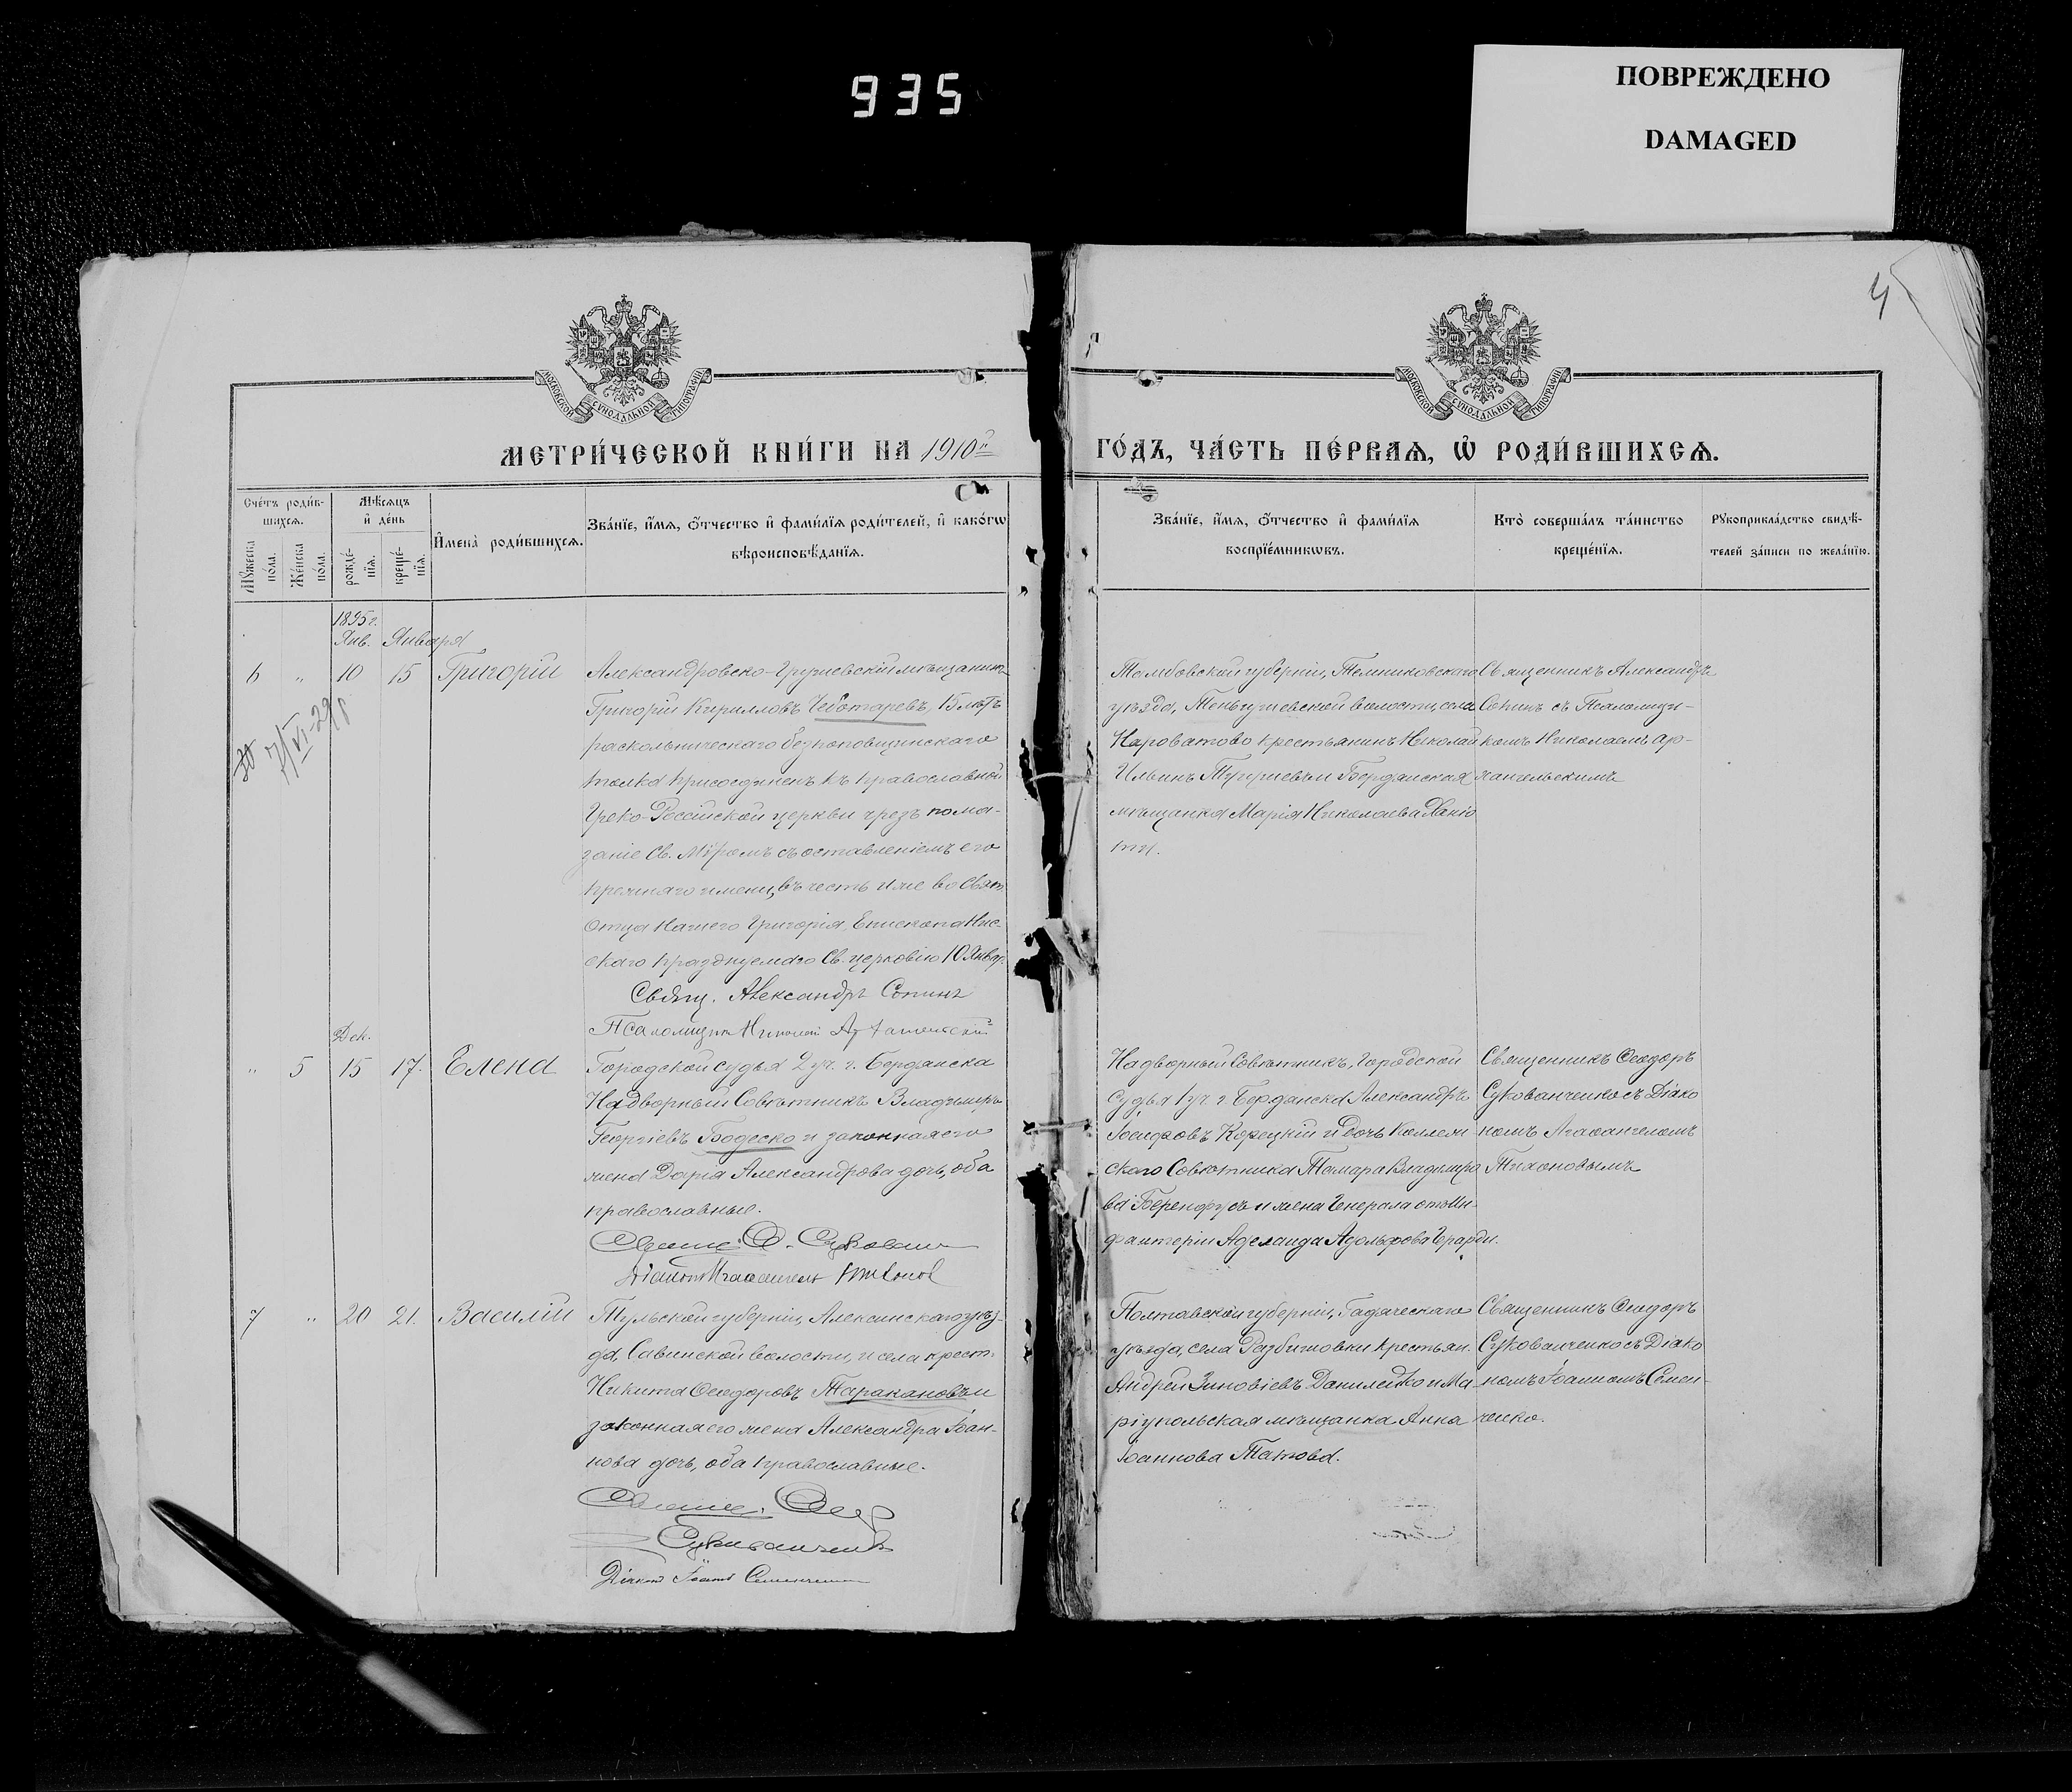 935
ПОВРЕЖДЕНО
DAMAGED
4
МОСКОВСКОЙ СѴНОДАЛЬНОЙ ТИПОГРАФІИ
МОСКОВСКОЙ СѴНОДАЛЬНОЙ ТИПОГРАФІИ
МЕТРИ́ЧЕСКОЙ КНИ́ГИ НА 1910й
ГО́ДЪ, ЧА́СТЬ ПЕ́РВАѦ, Ѡ РОДИ́ВШИХСѦ.
Сче́тъ роди́в-
шихсѧ.
Мѣ́сѧцъ
и де́нь
Мꙋ́жеска по́ла.
Же́нска по́ла.
рожде́-
нїѧ.
креще́-
нїѧ.
Имена̀ роди́вшихсѧ.
Зва́нїе, и́мѧ, о́тчество и фами́лїѧ роди́телей, и како́гѡ
вѣроисповѣ́данїѧ.
Зва́нїе, и́мѧ, о́тчество и фами́лїѧ
воспрїе́мникѡвъ.
Кто̀ соверша́лъ та́инство
креще́нїѧ.
Рꙋкоприкла́дство свидѣ́-
телей за́писи по жела́нїю.
1895 г.
Янв. Января
6 " 10 15 Григорій
Александровско-Грушевскій мѣщанинъ
Григорій Кирилловъ Чеботаревъ, 15 лѣтъ
раскольническаго безпоповщинскаго
толка присоединенъ къ православной
Греко-Россійской церкви чрезъ пома-
заніе Св. Мѵромъ съ оставленіемъ его
прежняго имени, въ честь иже во Свят.
Отца Нашего Григорія, Епископа Нис-
скаго празднуемаго Св. церковію 10 Январ.
Свящ. Александръ Сопинъ
Псаломщикъ Николай Архангельскій
Тамбовской губерніи, Темниковскаго
уѣзда, Теньгушевской волости, села
Нароватово крестьянинъ Николай
Ильинъ и Бердянская
мѣщанка Марія Николаева
Священникъ Александръ
Сопинъ съ Псаломщи-
комъ Николаемъ Ар-
хангельскимъ
Дек.
" 5 15 17. Елена
Городской судья 2 уч. г. Бердянска
Надворный Совѣтникъ Владиміръ
Георгіевъ Бодеско и законная его
жена Дарія Александрова дочь, оба
православные.
Свящ. Ѳ. Сукован
Діаконъ Агаѳангелъ Тихонов
Надворный Совѣтникъ, Городской
Судья 1 уч. г. Бердянска Александръ
Іосифовъ Корецкій и дочь Коллеж-
скаго Совѣтника Тамара Владиміро
ва Беренфусъ и жена Генерала отъ Ин-
фантеріи Аделаида Адольфова Герарди.
Священникъ Ѳеодоръ
Сукованченко съ Діако
номъ Агаѳангеломъ
Тихоновымъ
7 " 20 21. Василій
Тульской губерніи, Алексинскаго уѣз-
да, Савинской волости, и села крест.
Никита Ѳеодоровъ Таракановъ и
законная его жена Александра Іоан-
нова дочь, оба православные.
Свящ. Ѳеод
Сукованченко
Діаконъ Іоаннъ Семенченко
Полтавской губерніи, Гадяческаго
уѣзда, села Разбишовки крестьян.
Андрей Зиновіевъ Данилейко и Ма-
ріупольская мѣщанка Анна
Іоаннова Татова.
Священникъ Ѳеодоръ
Сукованченко съ Діако
номъ Іоанномъ Семен-
ченко.